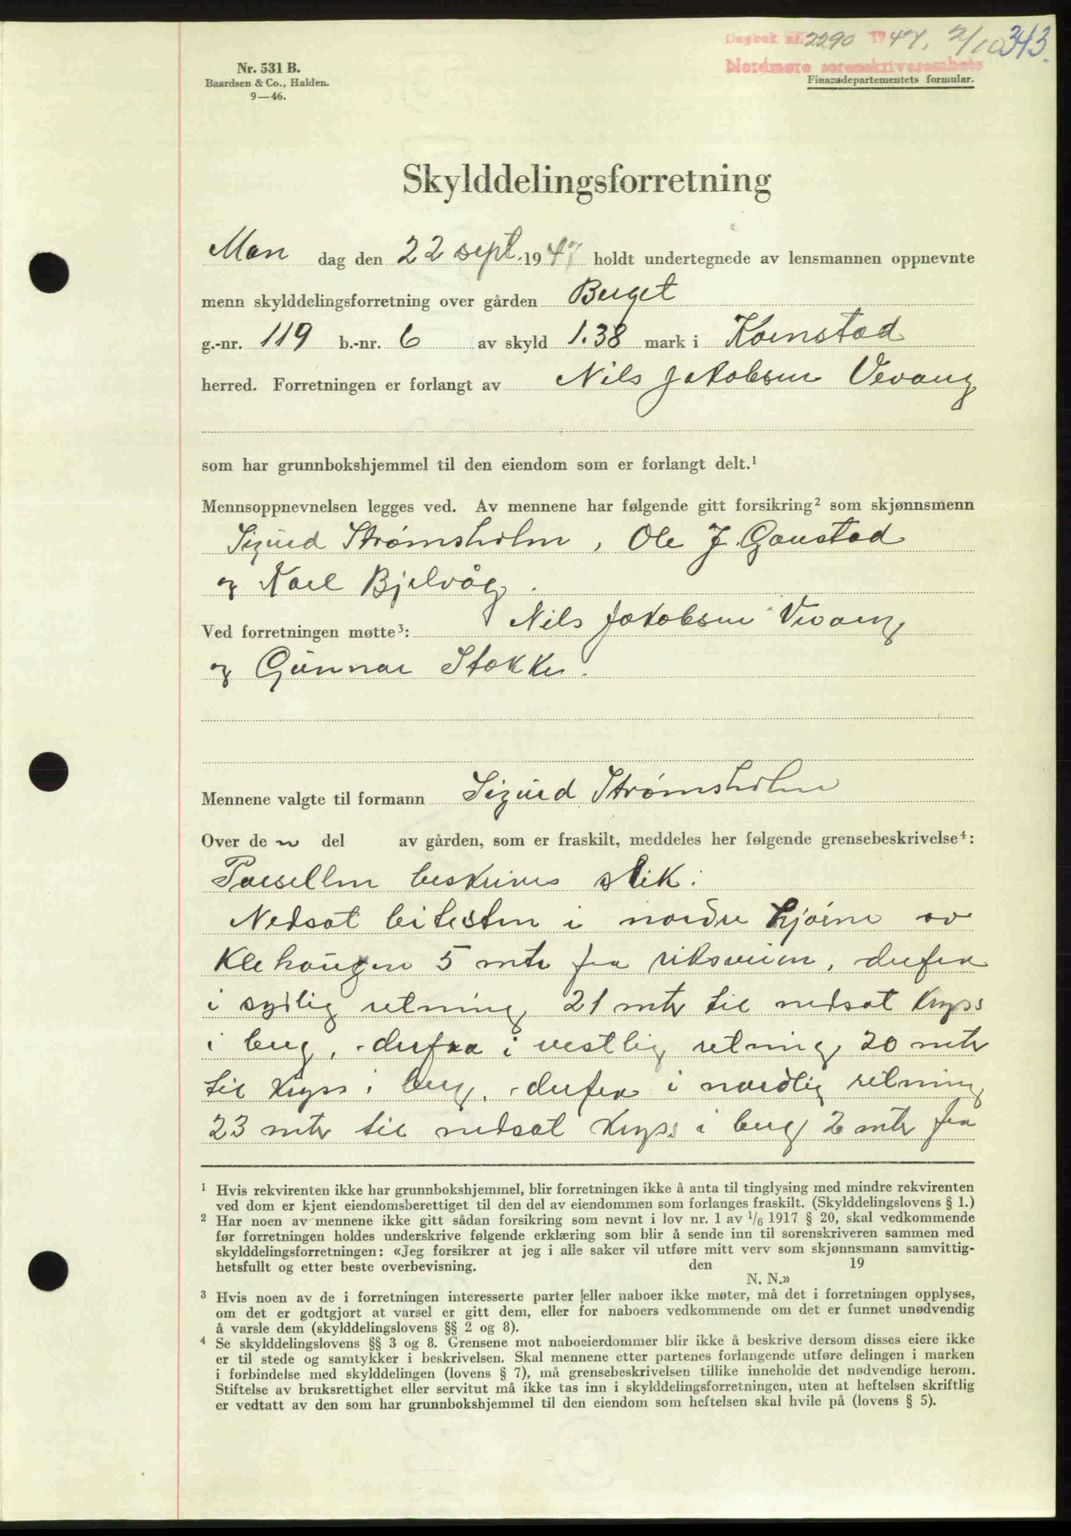 Dagbok nr. 2290 1947, 2/10 343.
Nordmøre sorenskriverembete
Nr. 531 B.
Baardsen & Co., Halden.
9—46.
Finansdepartementets formular.
Skylddelingsforretning
Man dag den 22 sept. 1947 holdt undertegnede av lensmannen oppnevnte
menn skylddelingsforretning over gården Berget
g.-nr. 119 b.-nr. 6 av skyld 1.38 mark i Kornstad
herred. Forretningen er forlangt av Nils Jakobsen Vevang
som har grunnbokshjemmel til den eiendom som er forlangt delt.¹
Mennsoppnevnelsen legges ved. Av mennene har følgende gitt forsikring² som skjønnsmenn
Sigurd Strømsholm, Ole J. Gaustad
og Karl Bjelvåg.
Ved forretningen møtte³: Nils Jakobsen Vevang
og Gunnar Stokke.
Mennene valgte til formann Sigurd Strømsholm
Over de n del av gården, som er fraskilt, meddeles her følgende grensebeskrivelse⁴:
Parsellen beskrives slik:
Nedsat bitesten i nordre hjørne av
Klehaugen 5 mtr fra riksveien, derfra
i sydlig retning 21 mtr til nedsat kryss
i berg, derfra i vestlig retning 20 mtr
til kryss i berg, derfra i nordlig retning
23 mtr til nedsat kryss i berg 2 mtr fra
¹ Hvis rekvirenten ikke har grunnbokshjemmel, blir forretningen ikke å anta til tinglysing med mindre rekvirenten
ved dom er kjent eiendomsberettiget til den del av eiendommen som forlanges fraskilt. (Skylddelingslovens § 1.)
² Har noen av mennene ikke gitt sådan forsikring som nevnt i lov nr. 1 av 1/6 1917 § 20, skal vedkommende
før forretningen holdes underskrive følgende erklæring som blir å sende inn til sorenskriveren sammen med
skylddelingsforretningen: «Jeg forsikrer at jeg i alle saker vil utføre mitt verv som skjønnsmann samvittig-
hetsfullt og etter beste overbevisning. den 19
N. N.»
³ Hvis noen av de i forretningen interesserte parter eller naboer ikke møter, må det i forretningen opplyses,
om det er godtgjort at varsel er gitt dem, eller for naboers vedkommende om det er funnet unødvendig
å varsle dem (skylddelingslovens §§ 2 og 8).
⁴ Se skylddelingslovens §§ 3 og 8. Grensene mot naboeierdommer blir ikke å beskrive dersom disses eiere ikke
er til stede og samtykker i beskrivelsen. Skal mennene etter partenes forlangende utføre delingen i marken
i forbindelse med skylddelingen (lovens § 7), må grensebeskrivelsen tillike inneholde det nødvendige herom.
Stiftelse av bruksrettighet eller servitut må ikke tas inn i skylddelingsforretningen, uten at heftelsen skriftlig
er vedtatt av den som har grunnbokshjemmel til den eiendom som heftelsen skal hvile på (lovens § 5).